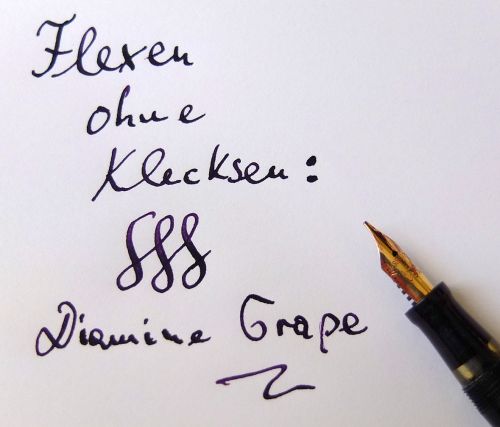 Flexen
ohne
Klecksen:
SSS
Diamine Grape